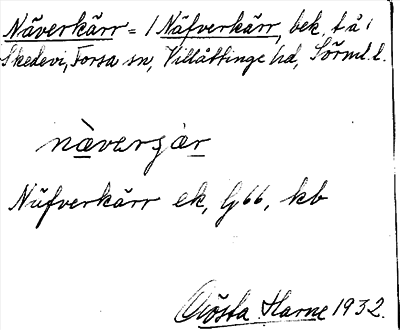 Näverkärr = / Näfverkärr, bek, t å /
Skedevi, Forsa sn, Villåttinge hd, Sörml. l.
nàvęrɟàr
Näfverkärr ek, G66, kb
Gösta Harne 1932.